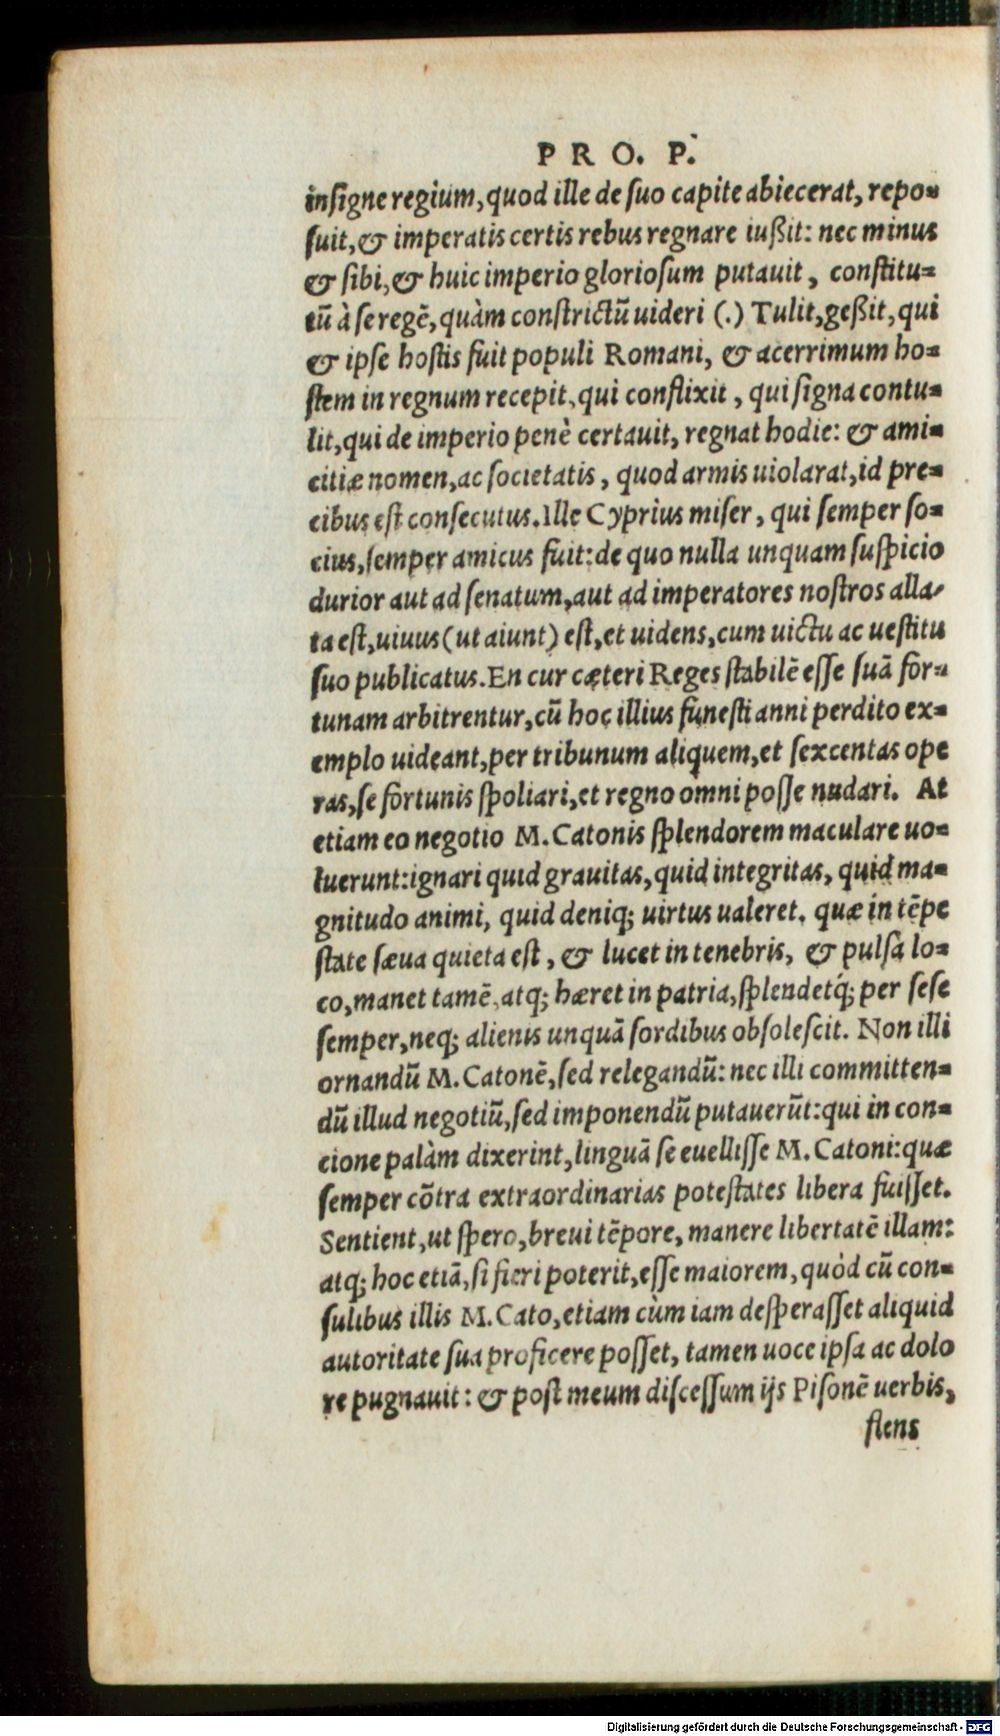 PRO. P.
inſigne regium, quod ille de ſuo capite abiecerat, repo=
ſuit, & imperatis certis rebus regnare iußit: nec minus
& ſibi, & huic imperio glorioſum putauit, conſtitu=
tũ à ſe regẽ, quàm conſtrictũ uideri (.) Tulit, geßit, qui
& ipſe hoſtis fuit populi Romani, & acerrimum ho=
ſtem in regnum recepit, qui conflixit, qui ſigna contu=
lit, qui de imperio penè certauit, regnat hodie: & ami=
citiæ nomen, ac ſocietatis, quod armis uiolarat, id pre=
cibus eſt conſecutus. Ille Cyprius miſer, qui ſemper ſo=
cius, ſemper amicus fuit: de quo nulla unquam ſuſpicio
durior aut ad ſenatum, aut ad imperatores noſtros alla-
ta eſt, uiuus (ut aiunt) eſt, et uidens, cum uictu ac ueſtitu
ſuo publicatus. En cur cæteri Reges ſtabilẽ eſſe ſuã for=
tunam arbitrentur, cũ hoc illius funeſti anni perdito ex=
emplo uideant, per tribunum aliquem, et ſexcentas ope
ras, ſe fortunis ſpoliari, et regno omni poſſe nudari. At
etiam eo negotio M. Catonis ſplendorem maculare uo=
luerunt: ignari quid grauitas, quid integritas, quid ma=
gnitudo animi, quid deniq; uirtus ualeret. quæ in tẽpe
ſtate ſæua quieta eſt, & lucet in tenebris, & pulſa lo=
co, manet tamẽ, atq; hæret in patria, ſplendetq́; per ſeſe
ſemper, neq; alienis unquã ſordibus obſoleſcit. Non illi
ornandũ M. Catonẽ, ſed relegandũ: nec illi committen=
dũ illud negotiũ, ſed imponendũ putauerũt: qui in con=
cione palàm dixerint, linguã ſe euelliſſe M. Catoni: quæ
ſemper cõtra extraordinarias poteſtates libera fuiſſet.
Sentient, ut ſpero, breui tẽpore, manere libertatẽ illam:
atq; hoc etiã, ſi fieri poterit, eſſe maiorem, quòd cũ con=
ſulibus illis M. Cato, etiam cùm iam deſperaſſet aliquid
autoritate ſua proficere poſſet, tamen uoce ipſa ac dolo
re pugnauit: & poſt meum diſceſſum ijs Piſonẽ uerbis,
flens
Digitalisierung gefördert durch die Deutsche Forschungsgemeinschaft - DFG